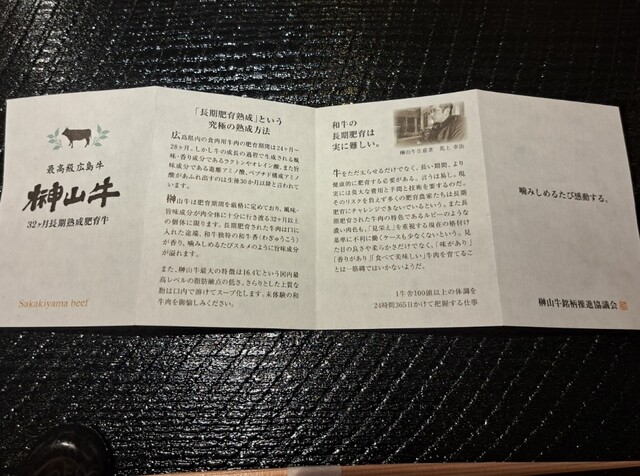 最高級広島牛
榊山牛
32ヶ月長期熟成肥育牛
Sakakiyama beef
「長期肥育熟成」という
究極の熟成方法
広島県内の食肉用牛肉の肥育期間は24ヶ月〜
28ヶ月。しかし牛の成長の過程で生成される風
味・香り成分であるラクトンやオレイン酸、また旨
味成分である遊離アミノ酸、ペプチド構成アミノ
酸があふれ出すのは生種30か月以降と言われて
います。
榊山牛は肥育期間を厳格に定めており、風味・
旨味成分が肉全体に十分に行き渡る32ヶ月以上
の個体に限ります。長期肥育された牛肉は口に
入れた途端、和牛独特の和牛香(わぎゅうこう)
が香り、噛みしめるたびスルメのように旨味成分
が溢れます。
また、榊山牛最大の特徴は16.4℃という国内最
高レベルの脂肪融点の低さ。さらりとした上質な
脂は口内で溶けてスープ化します。未体験の和
牛肉を御愉しみください。
和牛の
長期肥育は
実に難しい。
榊山牛生産者
牛をただ太らせるだけでなく、長い期間、より
健康的に肥育する必要がある。言うは易し。現
実には莫大な費用と手間と技術を要するのだ。
そのリスクを負えず多くの肥育農家たちは長期
肥育にチャレンジできないでいるという。また長
期肥育された牛肉の特色であるルビーのような
濃い肉色も、「見栄え」を重視する現在の格付け
基準に不利に働くケースも少なくないという。見
た目の良さや柔らかさだけでなく、「味があり」
「香りがあり」「食べて美味しい」牛肉を育てるこ
とは一筋縄ではいかないようだ。
1牛舎100頭以上の体調を
24時間365日かけて把握する仕事
噛みしめるたび感動する。
榊山牛銘柄推進協議会